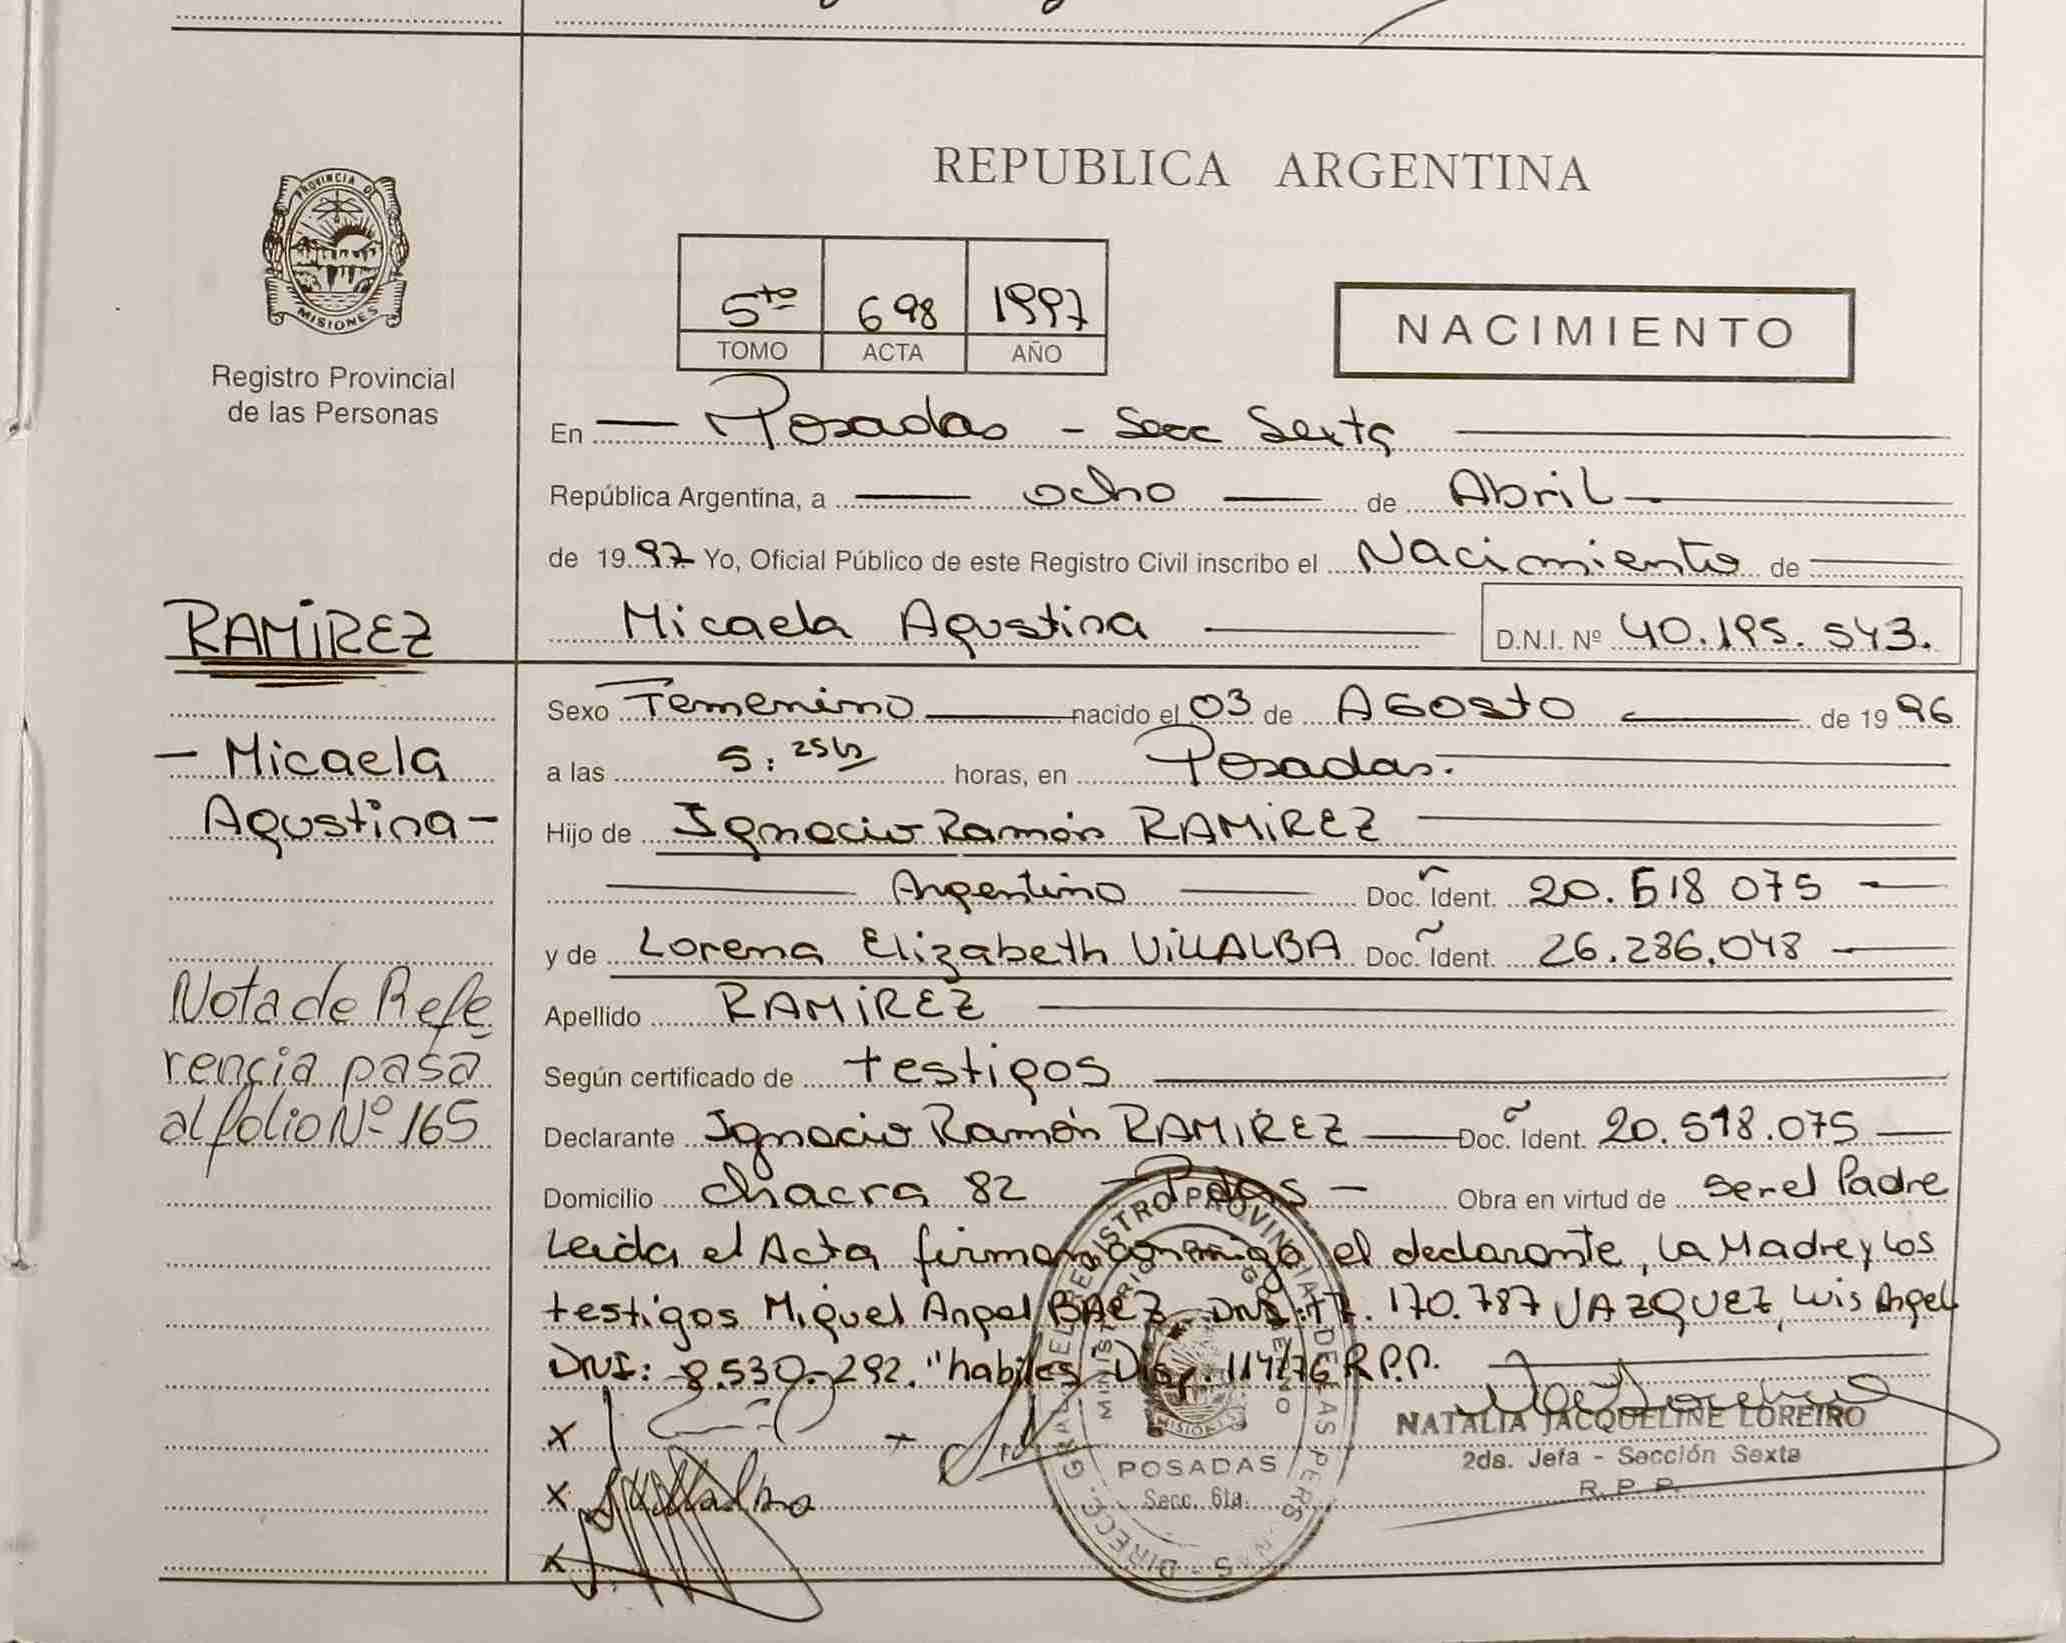 PROVINCIA DE
MISIONES
Registro Provincial
de las Personas
REPUBLICA ARGENTINA
5to 698 1997
TOMO ACTA AÑO
NACIMIENTO
En Posadas - Secc Sexta
República Argentina, a ocho de Abril
de 1997 Yo, Oficial Público de este Registro Civil inscribo el Nacimiento de
Micaela Agustina D.N.I. Nº 40.195.543.
RAMIREZ
- Micaela
Agustina -
Nota de Refe
rencia pasa
al folio Nº 165
Sexo Femenino nacido el 03 de AGosto de 1996
a las 5:25hs horas, en Posadas.
Hijo de Ignacio Ramón RAMIREZ
Argentino Doc. Ident. 20.518.075
y de Lorena Elizabeth VILLALBA Doc. Ident. 26.286.048
Apellido RAMIREZ
Según certificado de testigos
Declarante Ignacio Ramón RAMIREZ Doc. Ident. 20.518.075
Domicilio chacra 82 - Pdas - Obra en virtud de ser el Padre
Leida el Acta firman conmigo el declarante, la Madre y los
testigos Miguel Angel BAEZ DNI: 17.170.787 VAZQUEZ, Luis Angel
DNI: 8.530.292. "habiles" Disp. 114/76 R.P.P.
NATALIA JACQUELINE LOREIRO
2da. Jefa - Sección Sexta
R. P. P.
POSADAS
Secc. 6ta.